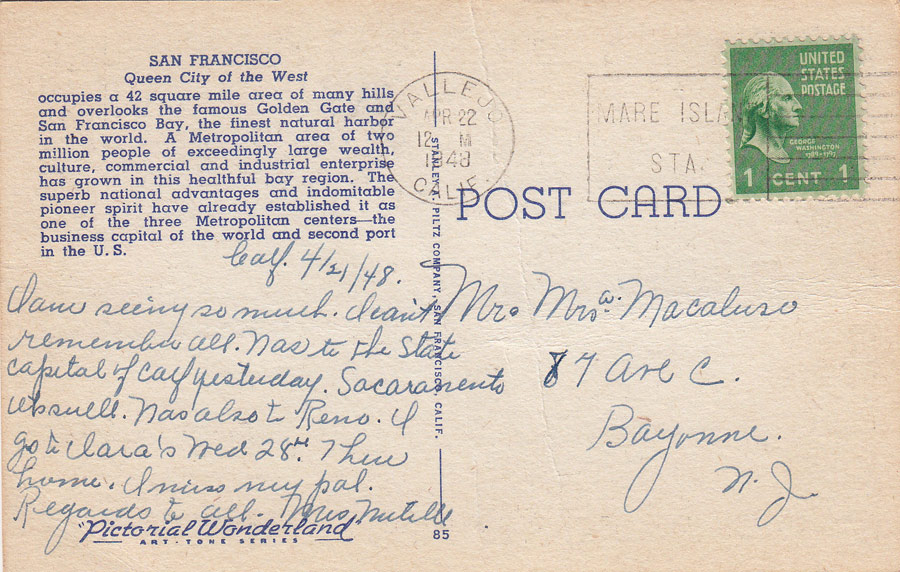 SAN FRANCISCO
Queen City of the West
occupies a 42 square mile area of many hills
and overlooks the famous Golden Gate and
San Francisco Bay, the finest natural harbor
in the world. A Metropolitan area of two
million people of exceedingly large wealth,
culture, commercial and industrial enterprise
has grown in this healthful bay region. The
superb national advantages and indomitable
pioneer spirit have already established it as
one of the three Metropolitan centers—the
business capital of the world and second port
in the U. S.
Calf. 4/21/48.
I am seeing so much. I can't
remember all. Was to the State
capital of calf yesterday. Sacaramento
Was also to Reno. I
go to Clara's Wed 28th. Then
home. I miss my pal.
Regards to all. Mrs
"Pictorial Wonderland"
ART-TONE SERIES
85
STANLEY A. PILTZ COMPANY, SAN FRANCISCO, CALIF.
VALLEJO
APR 22
12 M
1948
CALIF.
MARE ISLAN
STA.
UNITED
STATES
POSTAGE
GEORGE
WASHINGTON
1789-1797
1 CENT 1
POST CARD
Mr. Mrs. W. Macaluso
87 Ave C.
Bayonne.
N. J.